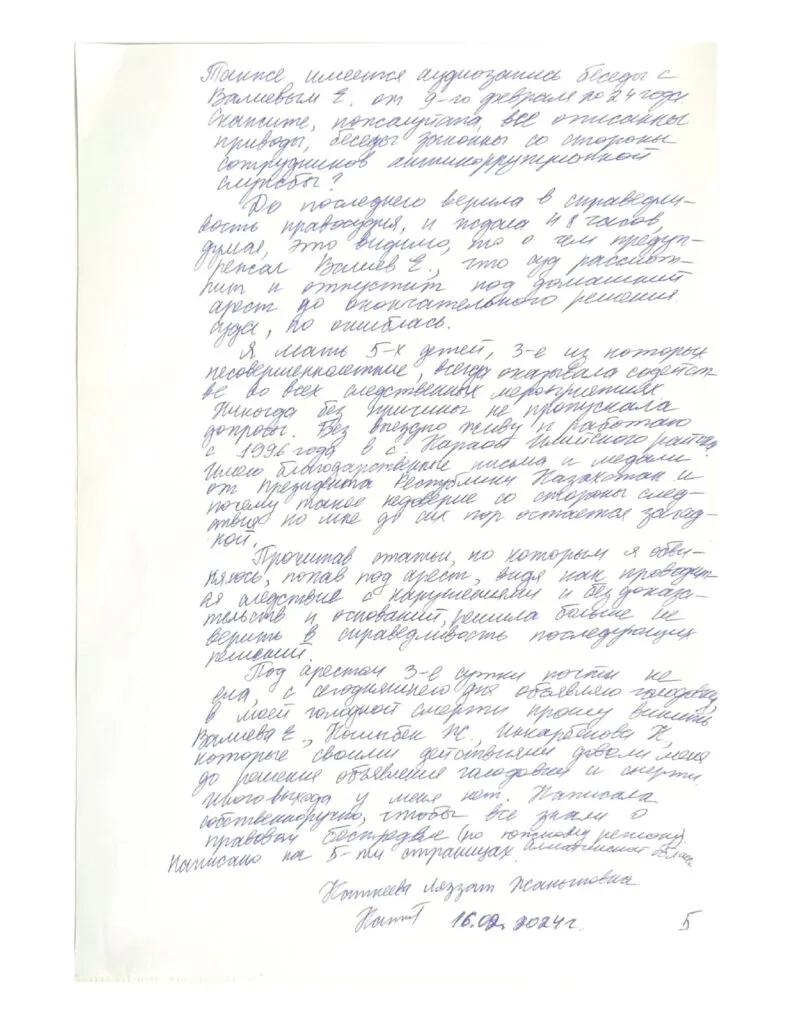 Также имеется аудиозапись беседы с
Валиевым Е. от 9-го февраля 2024 года
Скажите, пожалуйста, все описанные
приводы, беседы законны со стороны
сотрудников антикоррупционной
службы?
До последнего верила в справедли-
вость правосудия, и ждала 48 часов,
думая, это видимо, то о чем предуп-
реждал Валиев Е., что суд рассмот-
рит и отпустит под домашний
арест до окончательного решения
суда, но ошиблась.
Я мать 5-х детей, 3-е из которых
несовершеннолетние, всегда оказывала содейст-
вие во всех следственных мероприятиях
Никогда без причины не пропускала
допросы. Без выездно живу и работаю
с 1996 года в с. Караой Илийского района
Имею благодарственные письма и медали
от Президента Республики Казахстан и
почему такое недоверие со стороны след-
ствия ко мне до сих пор остается загад-
кой.
Прочитав статьи, по которым я обви-
няюсь, попав под арест, видя как проводит-
ся следствие с нарушениями и без доказа-
тельств и оснований, решила больше не
верить в справедливость последующих
решений.
Под арестом 3-е сутки почти не
ела, с сегодняшнего дня объявляю голодовку,
в моей голодной смерти прошу винить
Валиева Е., Ж.,
которые своими действиями довели меня
до решения объявления голодовки и смерти
Иного выхода у меня нет. Написала
собственноручно, чтобы все знали о
правовом беспределе (по региону)
Алматинской области
Написано на 5-ти страницах
Ляззат
16.02.2024 г.
5